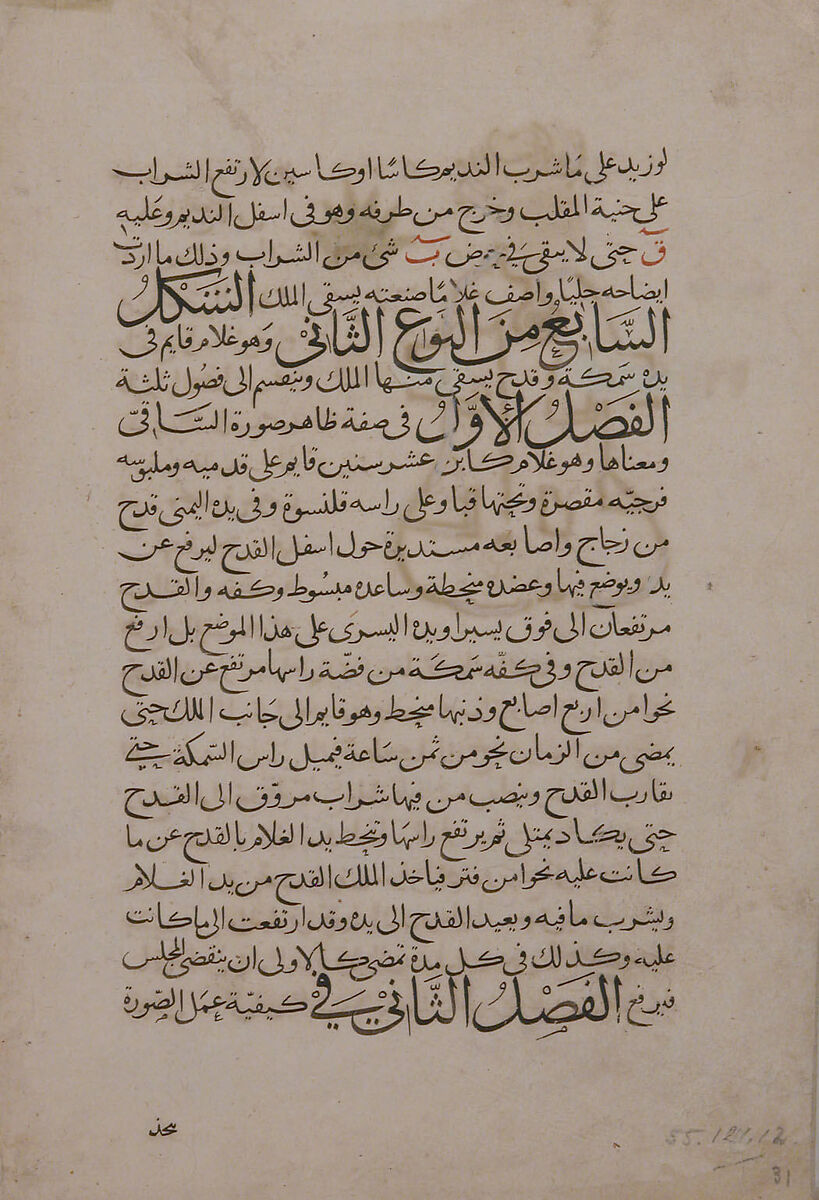 لو زيد على ما شرب النديم كاسًا او كاسين لارتفع الشراب
على حنية المقلب وخرج من طرفه وهو في اسفل النديم وعليه
ق حتى لا يبقى في حوض ب شئ من الشراب وذلك ما اردت
ايضاحه جليًا واصف غلامًا صنعته يسقى الملك الشكل
السّابع من النوع الثّاني وهو غلام قايم في
يده سمكة وقدح يسقى منها الملك وينقسم الى فصول ثلثة
الفصل الأوّل في صفة ظاهر صورة السّاقيّ
ومعناها وهو غلام كابن عشر سنين قايم على قدميه وملبوسه
فرجيّه مقصرة وتحتها قبا وعلى راسه قلنسوة وفي يده اليمنى قدح
من زجاج واصابعه مستديرة حول اسفل القدح ليرفع عن
يده ويوضع فيها وعضده منحطة وساعده مبسُوط وكفه والقدح
مرتفعان الى فوق يسيرا ويده اليسرى على هذا الموضع بل ارفع
من القدح وفي كفّه سَمكَة من فضّة راسها مرتفع عن القدح
نحوا من اربع اصابع وذنبها منحط وهو قايم الى جَانب الملك حتى
يمضى من الزمان نحو من ثمن سَاعة فيميل راس السّمكة حتى
يقارب القدح وينصب من فيها شراب مروّق الى القدح
حتى يكاد يمتلى ثم يرتفع راسها وتنحط يد الغلام بالقدح عن ما
كانت عليه نحوا من فتر فياخذ الملك القدح من يد الغلام
ويشرب ما فيه ويعيد القدح الى يده وقد ارتفعت الى ما كانت
عليه وكذلك في كل مدة تمضى كالاولى ان ينقضى المجلس
فيرفع الفصل الثّاني في كيفيّة عمل الصّورة
يتخذ
55.121.12
31